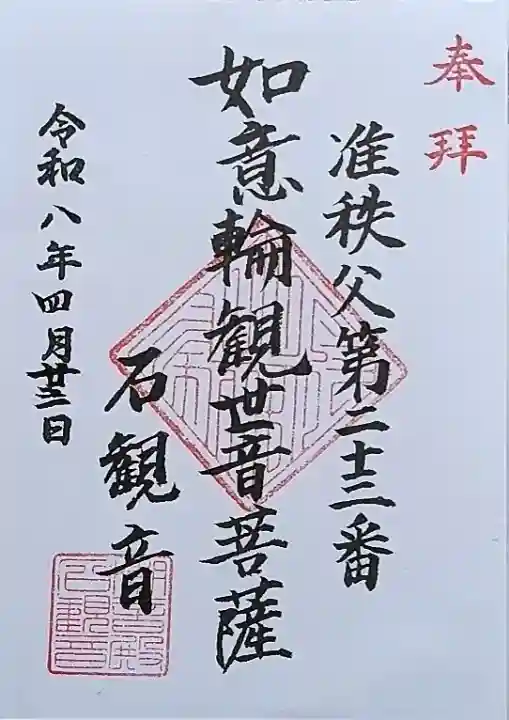 奉拝
准秩父第二十三番
如意輪観世音菩薩
石観音
令和八年四月廿三日